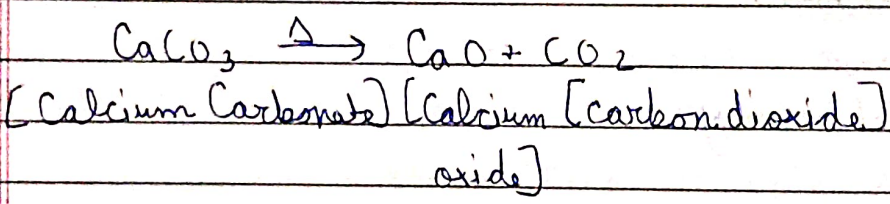 CaCO₃ Δ→ CaO + CO₂
[Calcium Carbonate] [Calcium [Carbon dioxide]
oxide]